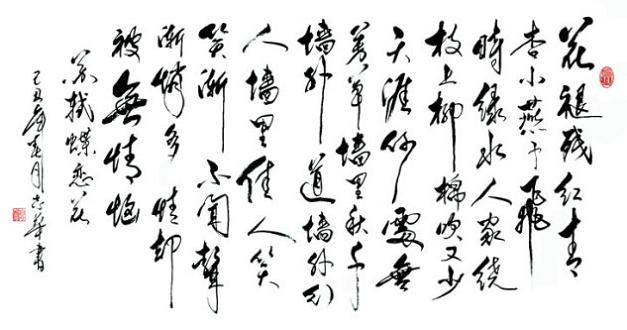 花褪残红青
杏小燕子飛
時緑水人家绕
枝上柳棉吹又少
天涯何處無
芳草墙里秋千
墙外道墙外行
人墙里佳人笑
笑渐不闻聲
渐悄多情却
被無情恼
苏轼蝶恋花
己丑年春月志華書